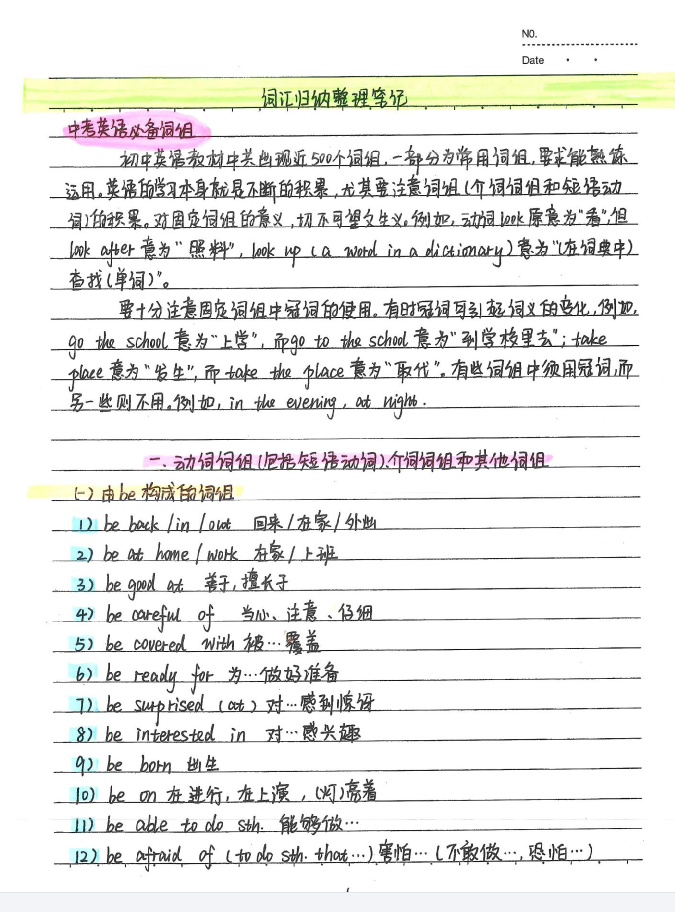 NO.
Date
词汇归纳整理笔记
中考英语必备词组
初中英语教材中共出现近500个词组,一部分为常用词组,要求能熟练
运用。英语的学习本身就是不断的积累,尤其要注意词组(介词词组和短语动
词)的积累。对固定词组的意义,切不可望文生义。例如,动词look原意为"看",但
look after意为"照料", look up (a word in a dictionary)意为"(在词典中)
查找(单词)"。
要十分注意固定词组中冠词的使用。有时冠词可引起词义的变化,例如,
go the school意为"上学",而go to the school意为"到学校里去"; take
place意为"发生",而take the place意为"取代"。有些词组中须用冠词,而
另一些则不用。例如, in the evening, at night.
一、动词词组(包括短语动词)、介词词组和其他词组
(一) 由be构成的词组
1) be back / in / out 回来/在家/外出
2) be at home / work 在家/上班
3) be good at 善于,擅长于
4) be careful of 当心、注意、仔细
5) be covered with 被…覆盖
6) be ready for 为…做好准备
7) be surprised (at) 对…感到惊讶
8) be interested in 对…感兴趣
9) be born 出生
10) be on 在进行,在上演,(灯)亮着
11) be able to do sth. 能够做…
12) be afraid of (to do sth. that…)害怕…(不敢做…,恐怕…)